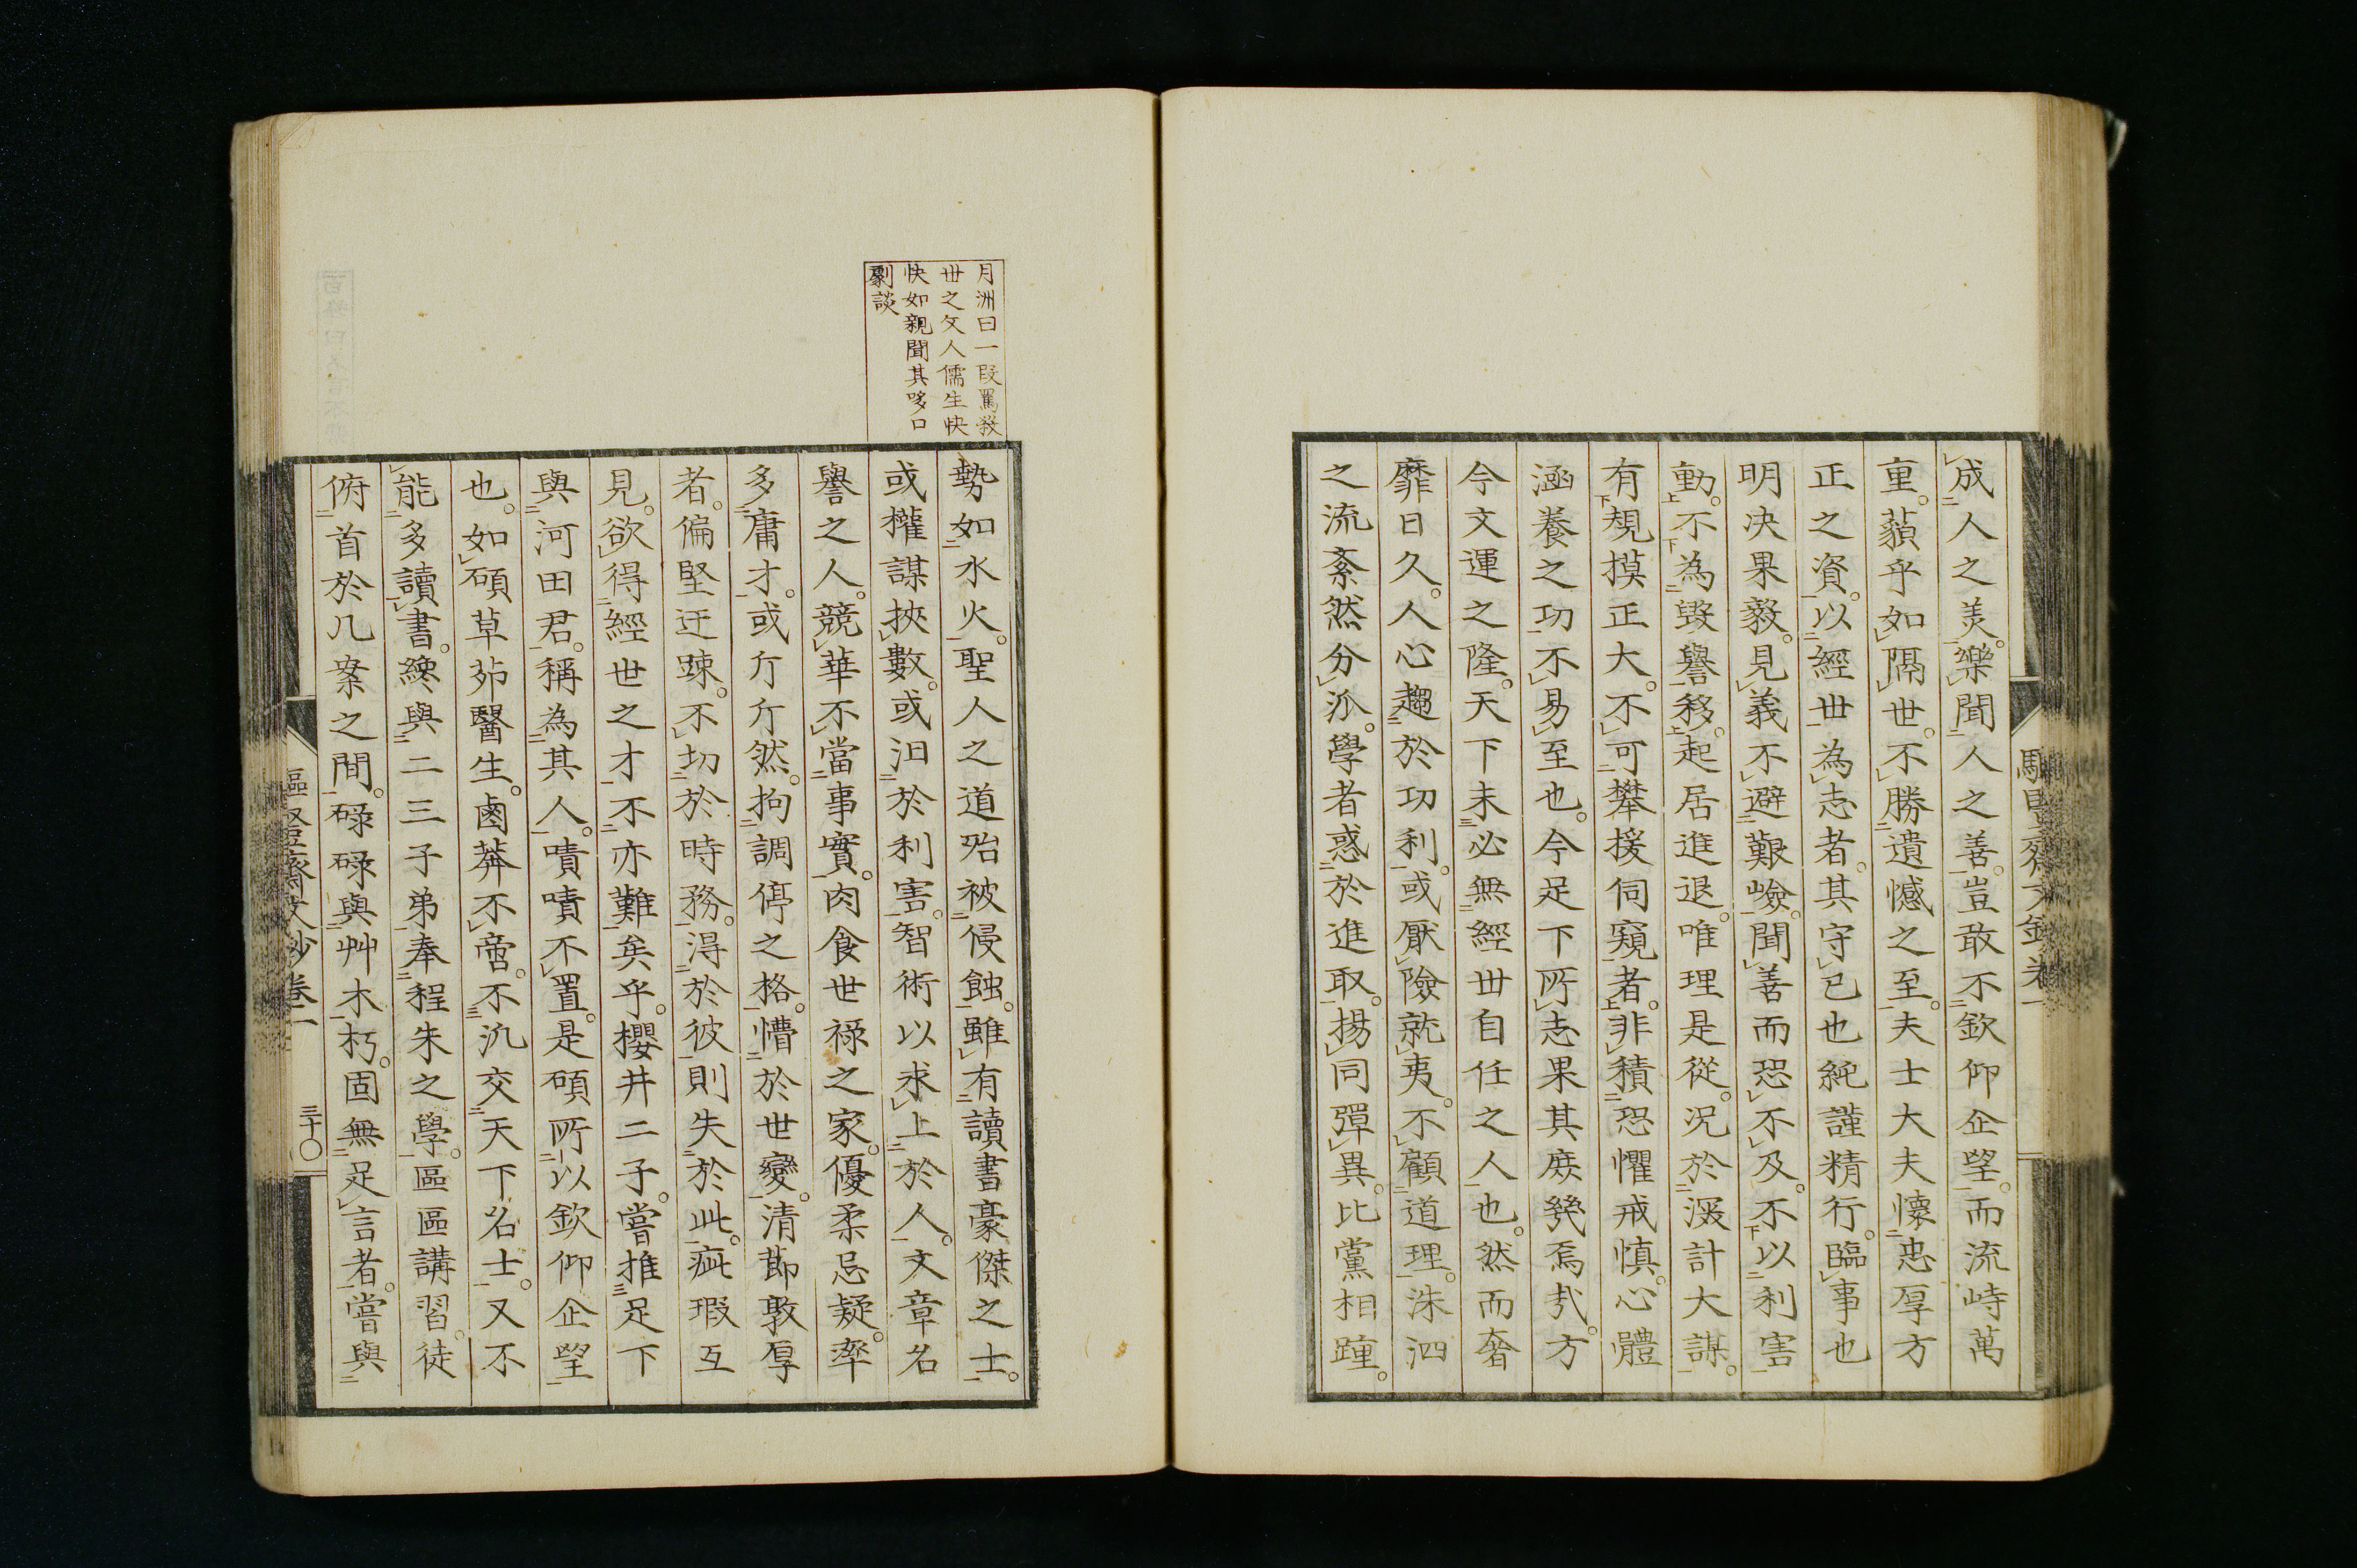 成人之美。樂聞人之善。豈敢不欽仰企望。而流峙萬
重。藐乎如隔世。不勝遺憾之至。夫士大夫懷忠厚方
正之資。以經世為志者。其守己也純謹精行。臨事也
明决果毅。見義不避艱嶮。聞善而恐不及。不以利害
動。不為毀譽移。起居進退。唯理是從。况於深計大謀。
有規摸正大。不可攀援伺窺者。非積恐懼戒慎。心體
涵養之功。不易至也。今足下所志果其庶幾焉哉。方
今文運之隆。天下未必無經世自任之人也。然而奢
靡日久。人心趨於功利。或厭險就夷。不顧道理。洙泗
之流紊然分派。學者惑於進取。揚同彈異。比黨相踵。
月洲曰一段罵殺
世之文人儒生快
快如親聞其哆口
劇談
勢如水火。聖人之道殆被侵蝕。雖有讀書豪傑之士。
或權謀挾數。或汩於利害。智術以求上於人。文章名
譽之人。競華不當事實。肉食世祿之家。優柔忌疑。率
多庸才。或斤斤然。拘調停之格。懵於世變。清節敦厚
者。偏堅迂踈。不切於時務。淂於彼則失於此。疵瑕互
見。欲得經世之才。不亦難矣乎。櫻井二子。嘗推足下
與河田君。稱為其人。嘖嘖不置。是碩所以欽仰企望
也。如碩草茆醫生。鹵莽不啻。不汎交天下名士。又不
能多讀書。纔與二三子弟。奉程朱之學。區區講習。徒
俯首於几案之間。碌碌與艸木朽。固無足言者。嘗與
區堅齋文鈔卷二
三十〇